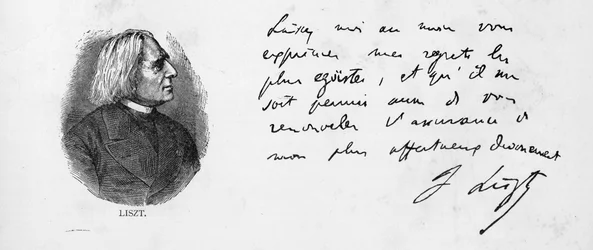 Laissez moi au moins vous
exprimer mes regrets les
plus egöistes, et qu'il me
soit permis aussi de vous
renouveler l'assurance de
mon plus affectueux devouement
F Liszt
LISZT.